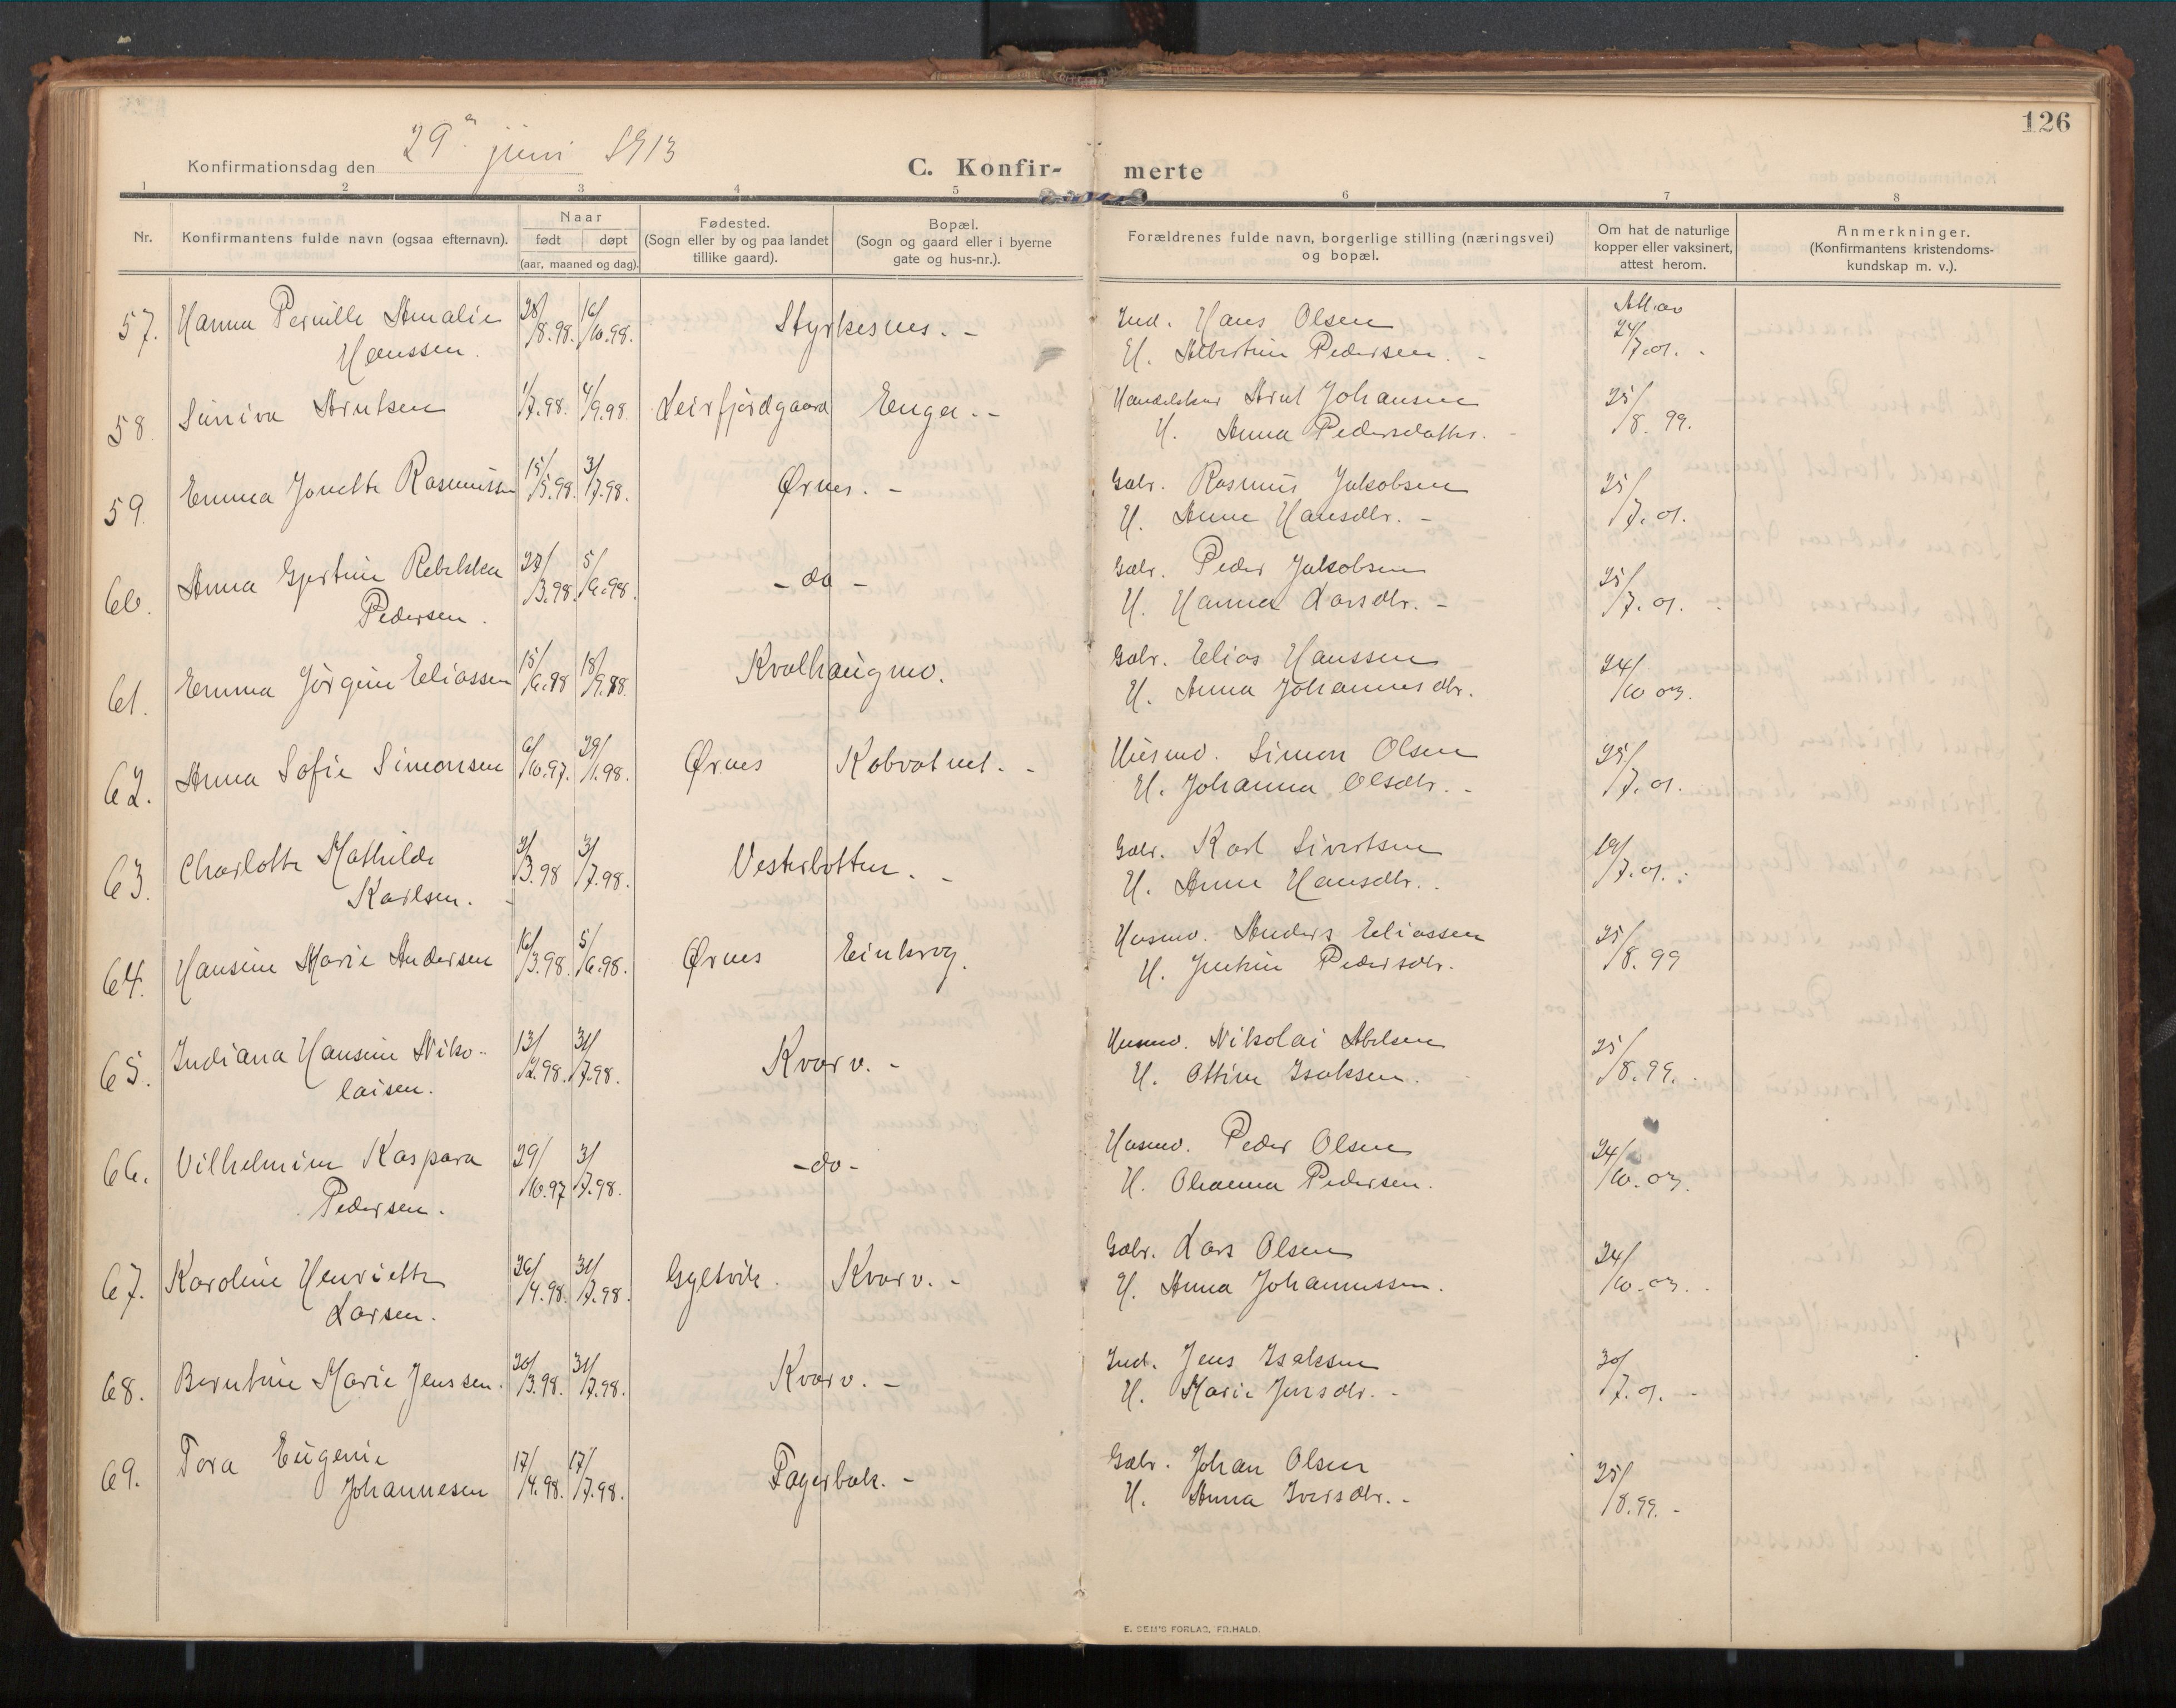 126
Konfirmationsdag den 29de juni 1913
C. Konfir- merte
1 2 3 4 5 6 7 8
Nr. Konfirmantens fulde navn (ogsaa efternavn). Naar født døpt (aar, maaned og dag). Fødested. (Sogn eller by og paa landet tillike gaard). Bopæl. (Sogn og gaard eller i byerne gate og hus-nr.). Forældrenes fulde navn, borgerlige stilling (næringsvei) og bopæl. Om hat de naturlige kopper eller vaksinert, attest herom. Anmerkninger. (Konfirmantens kristendoms- kundskap m. v.).
57. Hanna Pernille Amalie 28/8.98. 16/10.98. Styrkesnes. - Ind. Hans Olsen Att. av 24/7.01. -
Hanssen. H. Albertine Pedersen. -
58. Sunniva Arntsen 1/7.98. 4/9.98. Leirfjordgaard Enger. - Handelskar Arnt Johansen 25/8. 99.
H. Anna Pedersdatter. -
59. Emma Jonette Rasmussen 15/5.98. 31/7.98. Ørnes. - Gdbr. Rasmus Jakobsen 25/7. 01.
H. Anne Hansdtr. -
60. Anna Gjertine Rebekka 27/3.98. 5/6.98. - do - Gdbr. Peder Jakobsen 25/7. 01.
Pedersen. H. Hanna Larsdtr. -
61. Emma Jørgine Eliassen 15/6.98 18/9.98. Kvalhaugmo. Gdbr. Elias Hanssen 24/10 03.
H. Anna Johannesdtr.
62. Anna Sofie Simonsen 6/10.97. 29/1.98. Ørnes Kobvatnet. - Husmd. Simon Olsen 25/7. 01.
H. Johanna Olsdtr. -
63. Charlotte Mathilde 2/3.98 31/7.98. Vesterbotten. - Gdbr. Karl Sivertsen 19/7.01.
Karlsen. - H. Anne Hansdtr.
64. Hansine Marie Andersen 16/3.98. 5/6.98. Ørnes Einkrog. Husmd. Anders Eliassen 25/8. 99
H. Justine Pedersdtr.
65. Indiana Hansine Niko- 13/2.98. 31/7.98. Kvarv. - Husmd. Nikolai Abelsen 25/8.99.
laisen. H. Ottine Isaksen.
66. Vilhelmine Kaspara 29/10.97 31/7.98. - do - Husmd. Peder Olsen 24/10. 03.
Pedersen. H. Olianna Pedersen.
67. Karoline Henriette 26/4.98. 31/7.98. Gyltvik. Kvarv. - Gdbr. Lars Olsen 24/10. 03.
Larsen. H. Anna Johannessen.
68. Berntine Marie Jenssen. 20/3.98. 31/7.98. Kvarv. - Ind. Jens Isaksen 30/7. 01. -
H. Marie Jensdtr. -
69. Tora Eugenie 17/4.98. 17/7.98. Fagerbak. - Gdbr. Johan Olsen 25/8.99. -
Johannesen H. Anna Iversdtr. -
E. SEM'S FORLAG, FR.HALD.